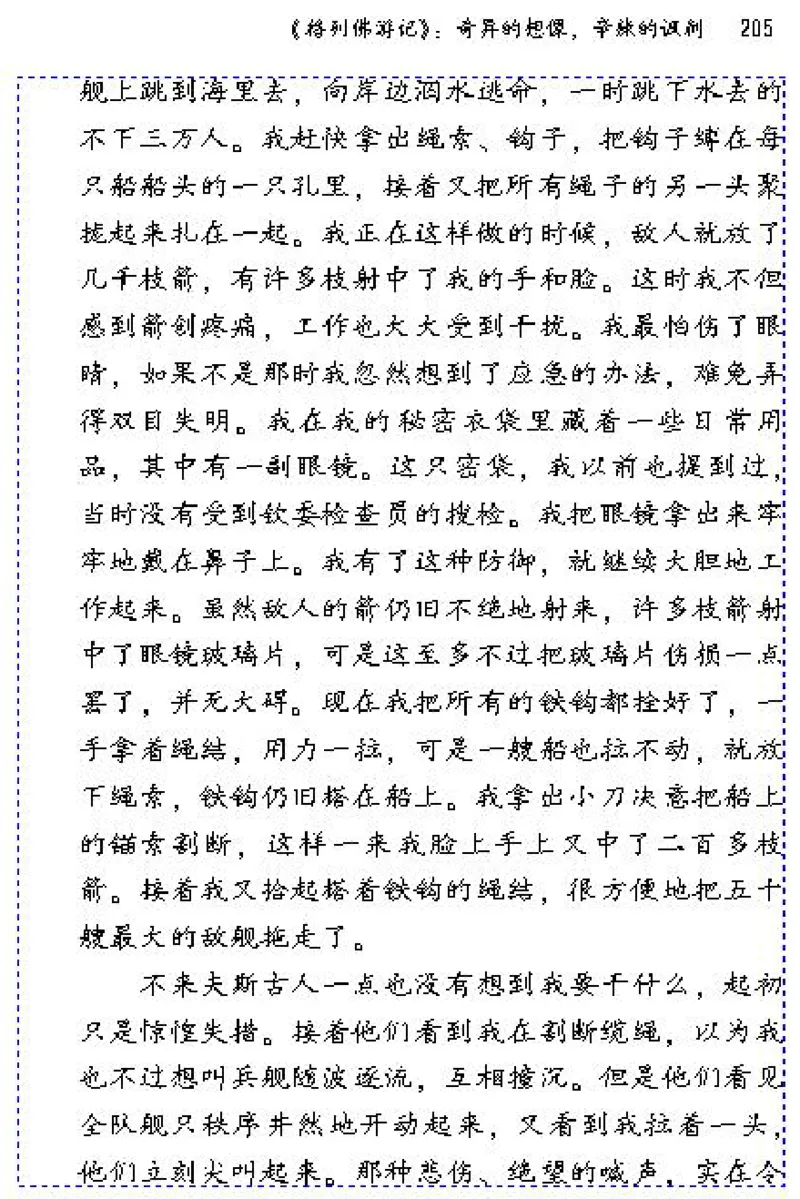 《格列佛游记》：奇异的想像，辛辣的讽刺 205
舰上跳到海里去，向岸边泅水逃命，一时跳下水去的
不下三万人。我赶快拿出绳索、钩子，把钩子缚在每
只船船头的一只孔里，接着又把所有绳子的另一头聚
拢起来扎在一起。我正在这样做的时候，敌人就放了
几千枝箭，有许多枝射中了我的手和脸。这时我不但
感到箭创疼痛，工作也大大受到干扰。我最怕伤了眼
睛，如果不是那时我忽然想到了应急的办法，难免弄
得双目失明。我在我的秘密衣袋里藏着一些日常用
品，其中有一副眼镜。这只密袋，我以前也提到过，
当时没有受到钦委检查员的搜检。我把眼镜拿出来牢
牢地戴在鼻子上。我有了这种防御，就继续大胆地工
作起来。虽然敌人的箭仍旧不绝地射来，许多枝箭射
中了眼镜玻璃片，可是这至多不过把玻璃片伤损一点
罢了，并无大碍。现在我把所有的铁钩都拴好了，一
手拿着绳结，用力一拉，可是一艘船也拉不动，就放
下绳索，铁钩仍旧搭在船上。我拿出小刀决意把船上
的锚索割断，这样一来我脸上手上又中了二百多枝
箭。接着我又拾起搭着铁钩的绳结，很方便地把五十
艘最大的敌舰拖走了。
不来夫斯古人一点也没有想到我要干什么，起初
只是惊惶失措。接着他们看到我在割断缆绳，以为我
也不过想叫兵舰随波逐流，互相撞沉。但是他们看见
全队舰只秩序井然地开动起来，又看到我拉着一头，
他们立刻尖叫起来。那种悲伤、绝望的喊声，实在令